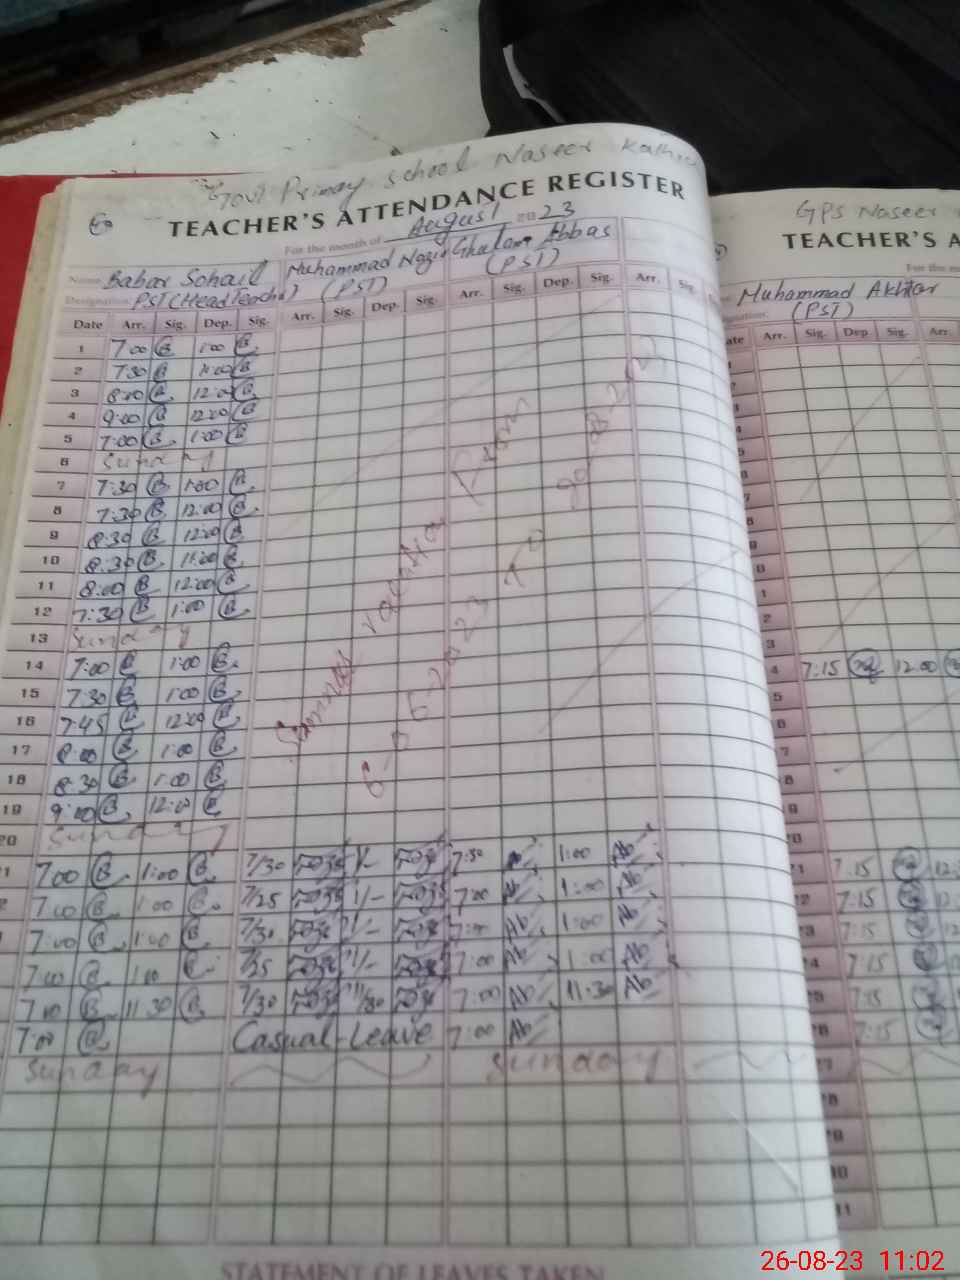 Govt Primary School Naseer
TEACHER'S ATTENDANCE REGISTER
For the month of August 2023
Name Babar Sohail Muhammad Nazir Ghulam Abbas
Designation PST (Head Teacher) (PST) (PST)
Date Arr. Sig. Dep. Sig. Arr. Sig. Dep. Sig. Arr. Sig. Dep. Sig. Arr. Sig.
1 7:00 B 1:00 B
2 7:30 B 11:00 B
3 8:00 B 12:00 B
4 9:00 B 12:00 B
5 7:00 B 1:00 B
6 Sunday
7 7:30 B 1:00 B
8 7:30 B 12:00 B
9 8:30 B 12:00 B
10 8:30 B 11:00 B
11 8:00 B 12:00 B
12 7:30 B 1:00 B
13 Sunday
14 7:00 B 1:00 B
15 7:30 B 1:00 B
16 7:45 B 12:00 B
17 8:00 B 1:00 B
18 8:30 B 1:00 B
19 9:00 B 12:00 B
20 Sunday
Summer vacation From
6-2023 To 20-08-2023
1 7:00 B 1:00 B 7/30 1/- 7:30 Ab 1:00 Ab
7:00 B 1:00 B 7/25 1/- 7:00 Ab 1:00 Ab
7:00 B 1:00 B 7/30 1/- Ab 1:00 Ab
7:00 B 1:00 B 1/- 7:00 Ab 1:00 Ab
7:00 B 11:30 B 7/30 11/30 7:00 Ab 11:30 Ab
7:00 B Casual Leave 7:00 Ab
Sunday Sunday
STATEMENT OF LEAVES TAKEN
GPS Naseer
TEACHER'S A
For the m
Muhammad Akhtar
(PST)
ate Arr. Sig. Dep Sig. Arr.
4 7:15 12:00
1 7:15 12:
2 7:15
3 7:15
4 7:15
5 7:15
6 7:15
26-08-23 11:02